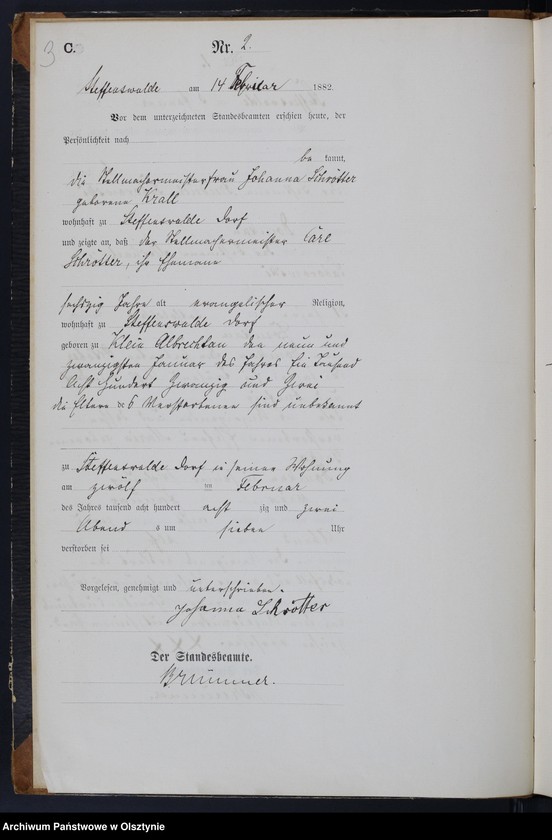 3
C. Nr. 2.
Steffenswalde am 14 Februar 1882.
Vor dem unterzeichneten Standesbeamten erschien heute, der
Persönlichkeit nach
be kannt,
die Stellmachermeisterfrau Johanna Schrötter
geborene Krall
wohnhaft zu Steffenswalde Dorf
und zeigte an, daß der Stellmachermeister Carl
Schrötter, ihr Ehemann
sechszig Jahre alt evangelischer Religion,
wohnhaft zu Steffenswalde Dorf
geboren zu Klein Albrechtau den neun und
zwanzigsten Januar des Jahres Ein Tausend
Acht Hundert Zwanzig und Zwei
die Eltern des Verstorbenen sind unbekannt
zu Steffenswalde Dorf in seiner Wohnung
am zwölf ten Februar
des Jahres tausend acht hundert acht zig und zwei
Abend s um sieben Uhr
verstorben sei
Vorgelesen, genehmigt und unterschrieben.
Johanna Schrötter
Der Standesbeamte.
Brümmer.
Archiwum Państwowe w Olsztynie